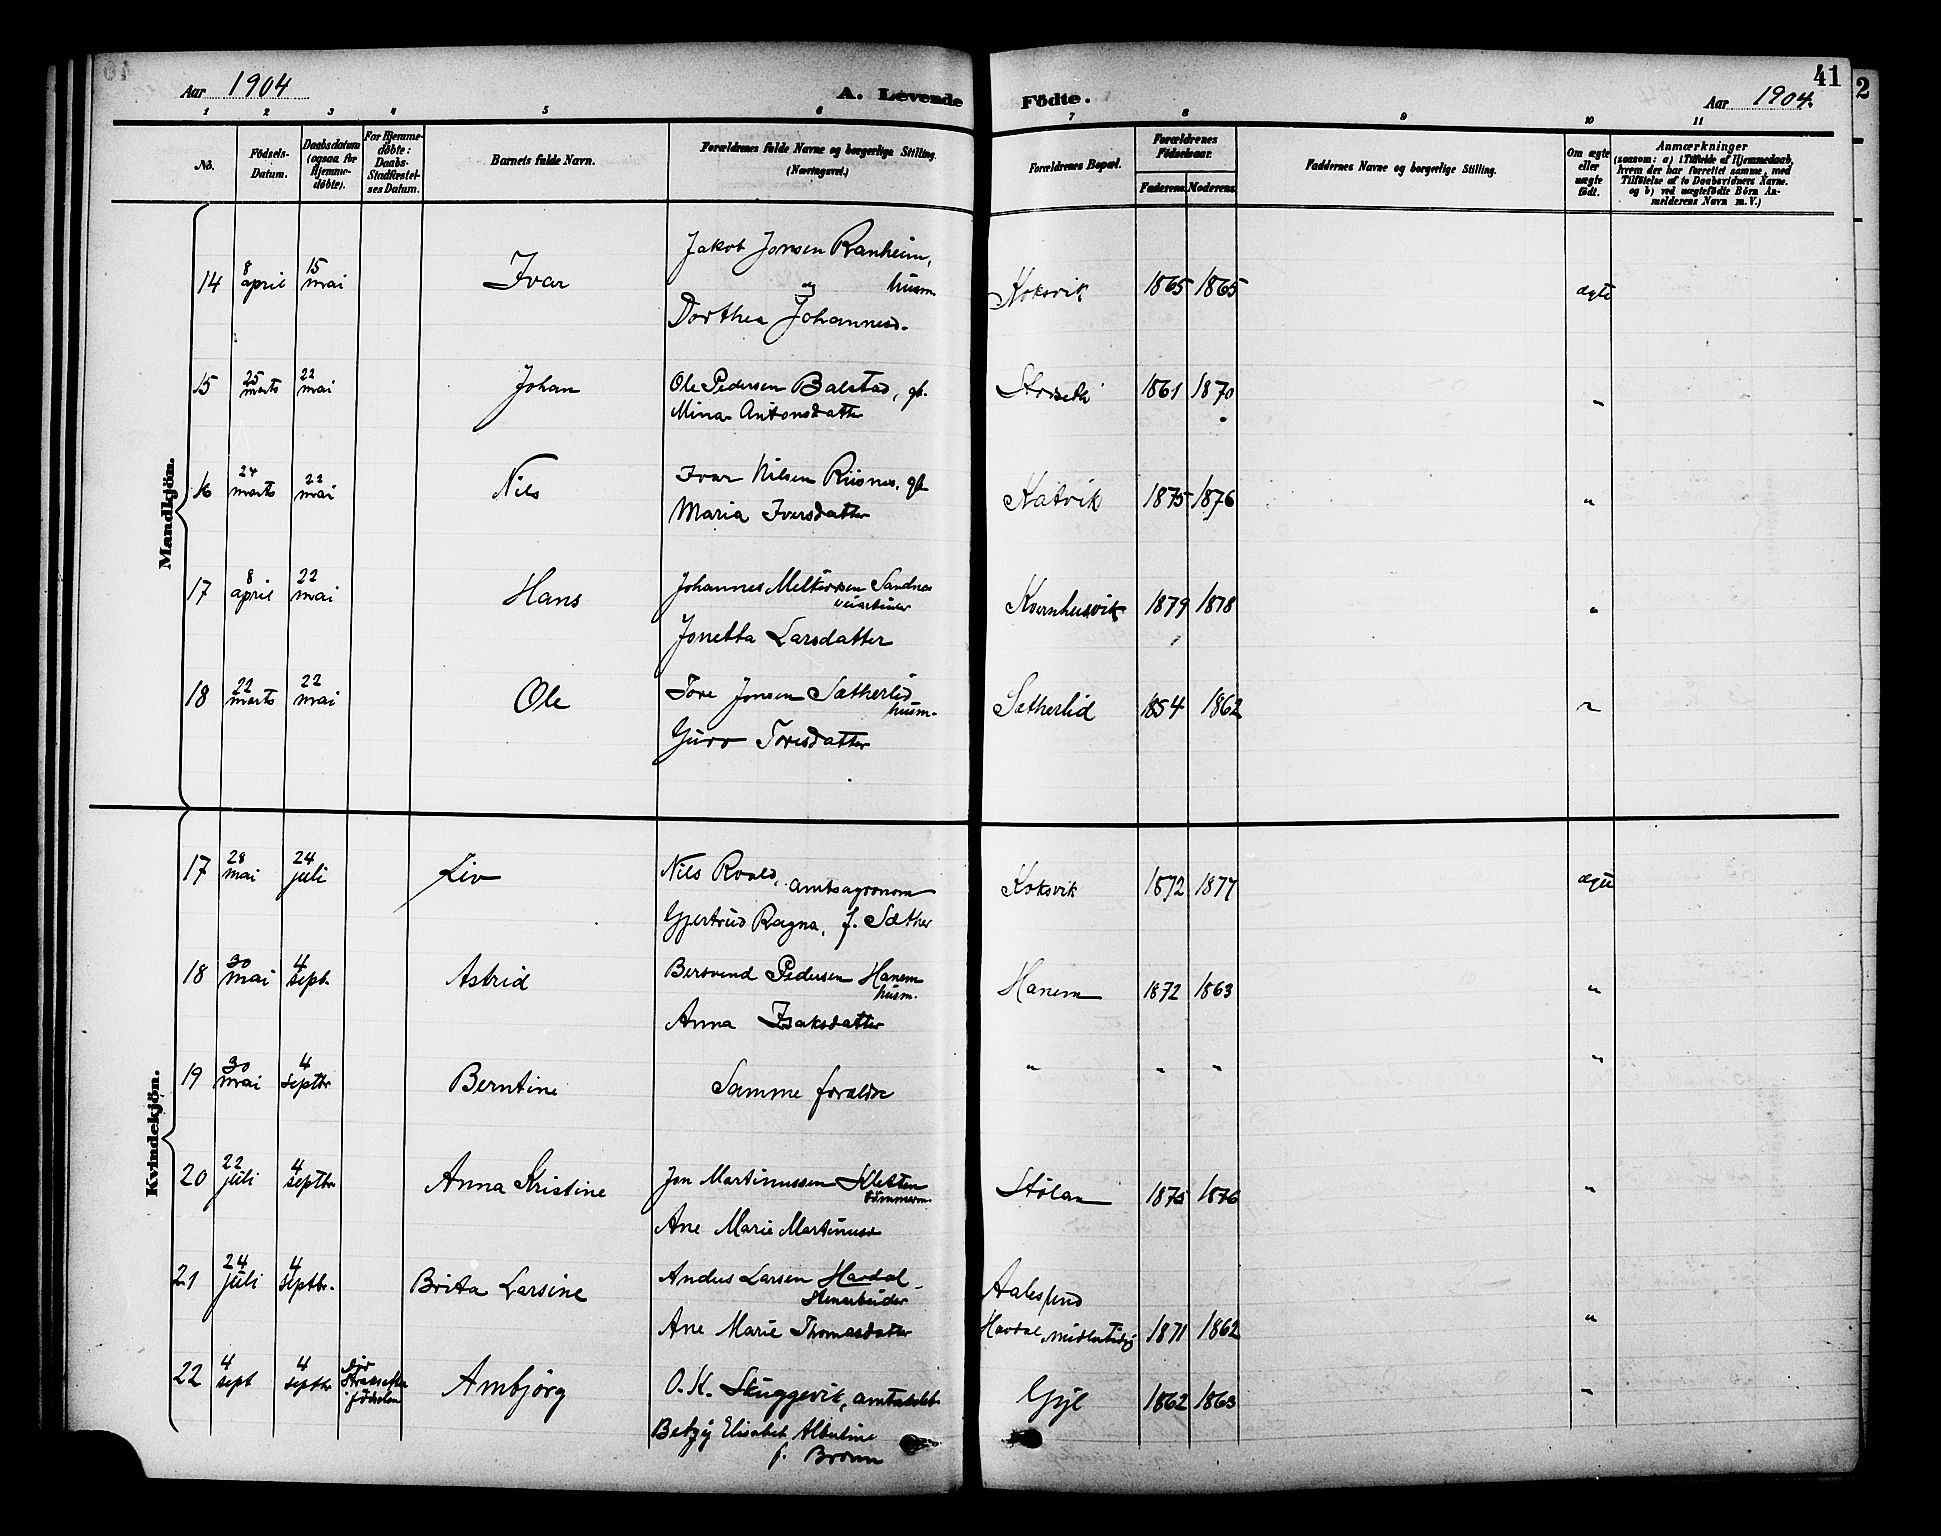 Aar 1904
A. Levende Födte.
41
Aar 1904.
2
1 2 3 4 5 6 7 8 9 10 11
No.
Födsels-Datum.
Daabsdatum (ogsaa for Hjemmedöbte).
For Hjemmedöbte: Daabs-Stadfæstelses Datum.
Barnets fulde Navn.
Forældrenes fulde Navne og borgerlige Stilling.
(Næringsvei.)
Forældrenes Bopæl.
Forældrenes Födselsaar.
Faderens Moderens
Faddernes Navne og borgerlige Stilling.
Om ægte eller uægte födt.
Anmærkninger
(saasom: a) i Tilfælde af Hjemmedaab, hvem der har forrettet samme, med Tilföielse af to Daabsvidners Navne. og b) ved uægtefödte Börn Anmelderens Navn m. V.)
Mandkjön.
14 8 april 15 mai Ivar Jakob Jonsen Ranheim, husm. og Dorthea Johannesd. Koksvik 1865 1865 ægte
15 25 marts 22 mai Johan Ole Pedersen Balstad, gb. Mina Antonsdatter 1861 1870 "
16 24 marts 22 mai Nils Ivar Nilsen Riisnes, gb. Maria Iversdatter Katvik 1875 1876 "
17 8 april 22 mai Hans Johannes Melkiorsen Sandnes veiarbeider Jonetta Larsdatter Kvernhusvik 1879 1878 "
18 22 marts 22 mai Ole Tore Jonsen Sætherlid husm. Guro Toresdatter Sætherlid 1854 1862 "
Kvindekjön.
17 28 mai 24 juli Liv Nils Roald, amtsagronom Gjertrud Ragna, f. Sæther Koksvik 1872 1877 ægte
18 30 mai 4 sept. Astrid Bersvend Pedersen Hanem husm. Anna Isaksdatter Hanem 1872 1863 "
19 30 mai 4 septbr Berntine Samme forældre " " " "
20 22 juli 4 septbr Anna Kristine Jon Martinussen Kletten tömmerm. Ane Marie Martinusd Stølan 1875 1876 "
21 24 juli 4 septbr. Brita Larsine Anders Larsen Havdal Stenarbeider Ane Marie Thomasdatter Aalesund Havdal midlertidig 1871 1862 "
22 4 sept 4 septbr Ambjörg O. K. Skuggevik, Betzy Elisabet Albertine f. Broun Gjl 1862 1863 "